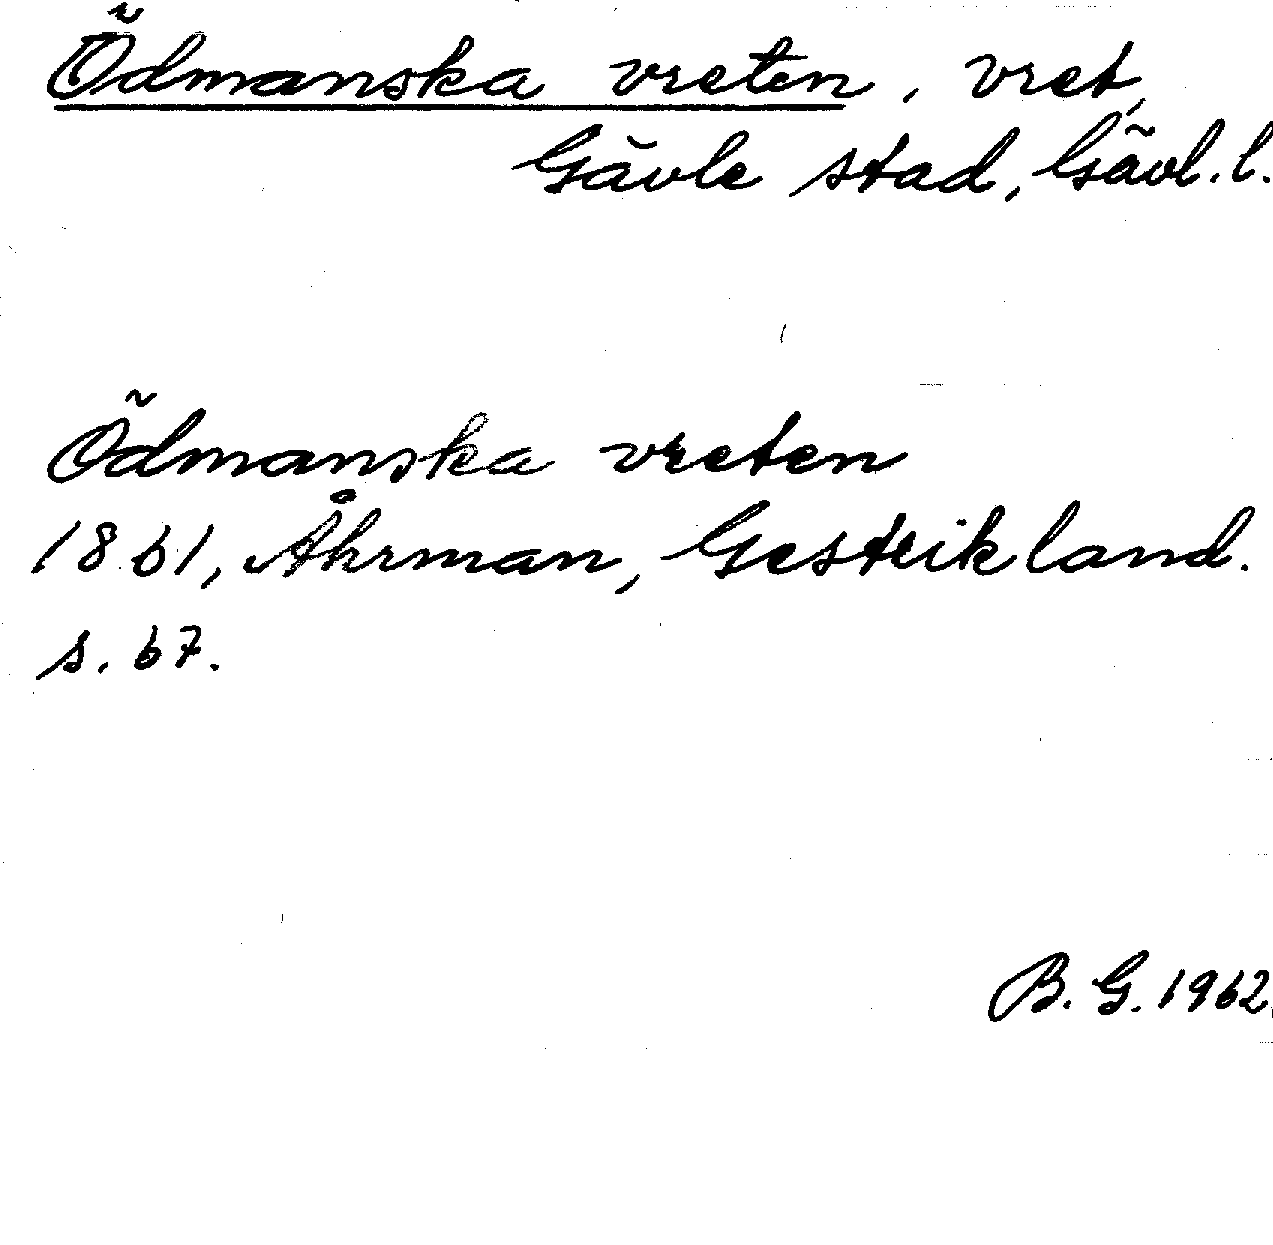 Ödmanska vreten, vret,
Gävle stad, Gävl. l.
Ödmanska vreten
1861, Åhrman, Gestrikland.
s. 67.
B. G. 1962.